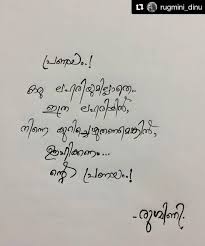 rugmini_dinu
പ്രണയം..!
ഒരു ലഹരിയുമില്ലാതെ..
ഇതര ലഹരിയിൽ,
നിന്നെ കുറിച്ചെഴുതണമെങ്കിൽ,
ഊഹിക്കണം...
ന്റെ പ്രണയം..!
-രുഗ്മിണി.